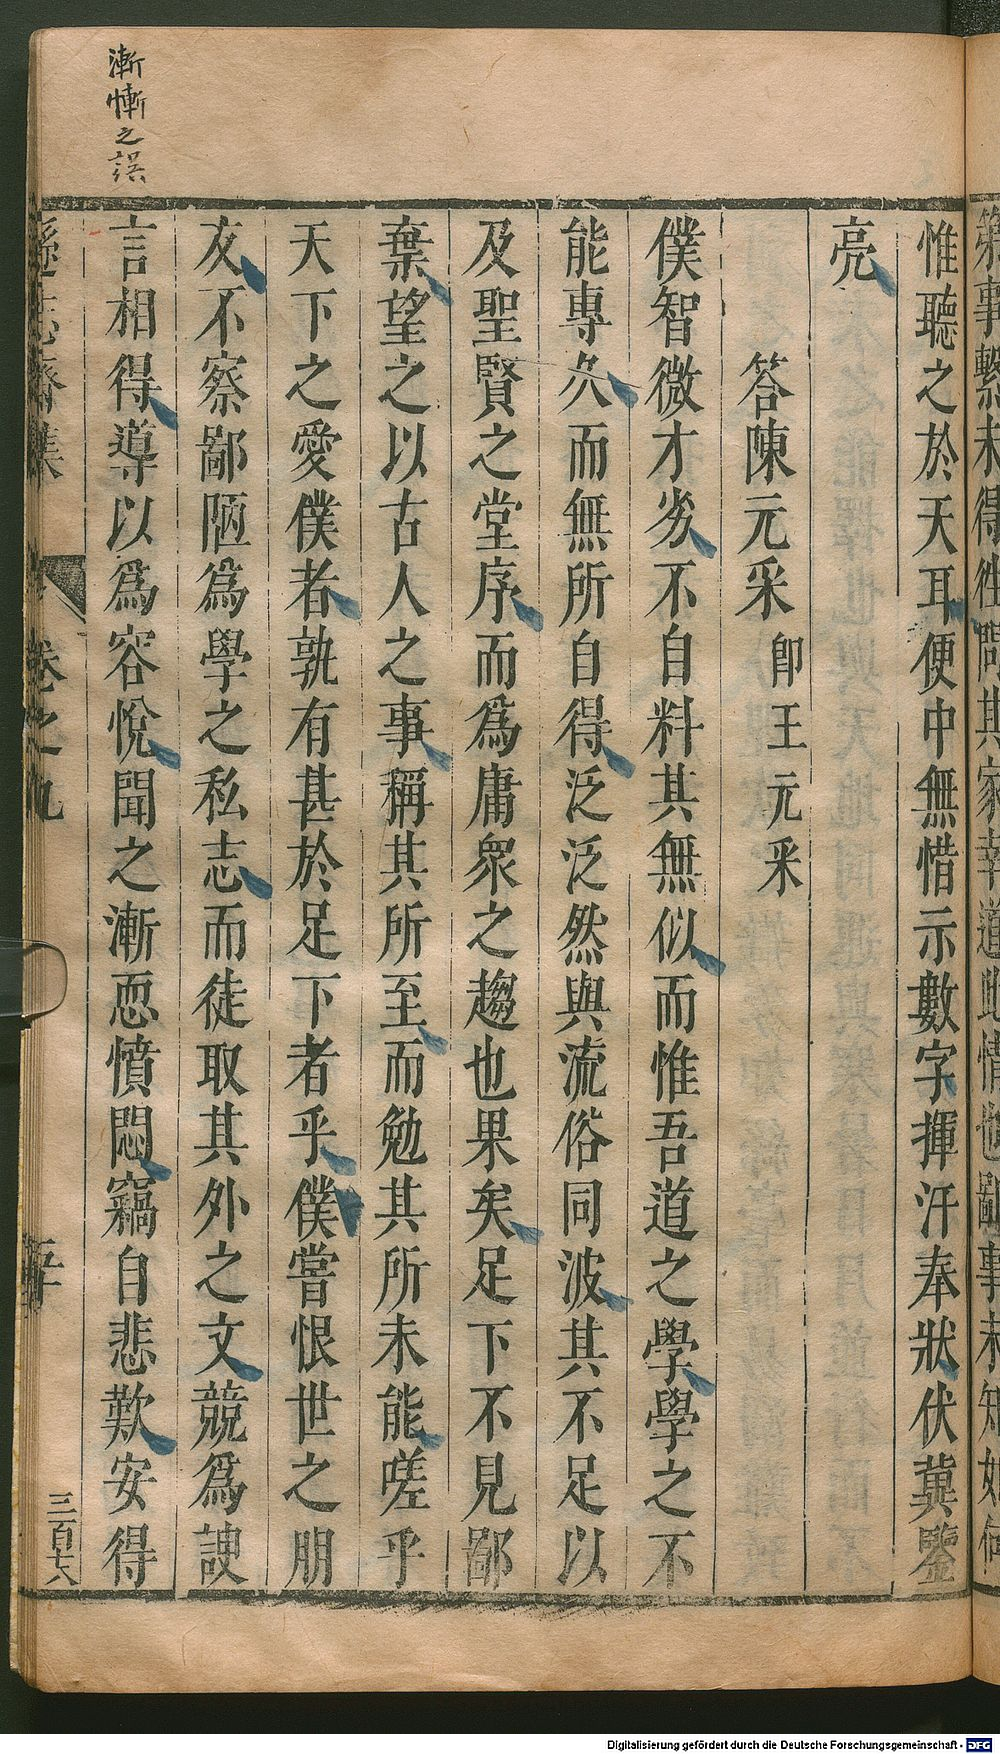 第事繫未得徃問其家幸道此情也鄙事未知如何
惟聽之於天耳便中無惜示數字揮汗奉狀伏冀鑒
亮
答陳元采 卽王元采
僕智微才劣不自料其無似而惟吾道之學學之不
能專久而無所自得泛泛然與流俗同波其不足以
及聖賢之堂序而爲庸衆之趨也果矣足下不見鄙
棄望之以古人之事稱其所至而勉其所未能嗟乎
天下之愛僕者孰有甚於足下者乎僕嘗恨世之朋
友不察鄙陋爲學之私志而徒取其外之文競爲諛
言相得導以爲容悅聞之漸恧憤悶竊自悲歎安得
漸慚之誤
遜志齋集 卷之九 五十
三百七八
Digitalisierung gefördert durch die Deutsche Forschungsgemeinschaft - DFG